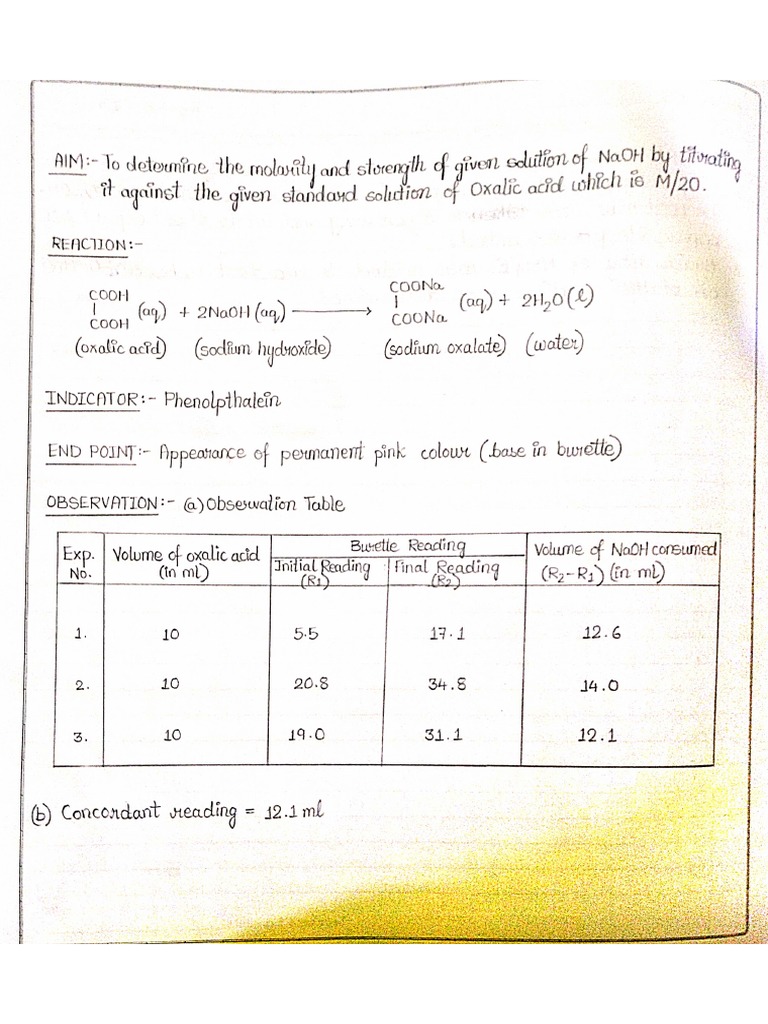 AIM:- To determine the molarity and strength of given solution of NaOH by titrating
it against the given standard solution of Oxalic acid which is M/20.
REACTION:-
COOH
|
COOH
(aq) + 2NaOH (aq) ⟶
COONa
|
COONa
(aq) + 2H₂O (l)
(oxalic acid) (sodium hydroxide) (sodium oxalate) (water)
INDICATOR:- Phenolpthalein
END POINT:- Appearance of permanent pink colour (base in burette)
OBSERVATION:- (a) Observation Table
Exp. No.
Volume of oxalic acid (in ml)
Burette Reading
Initial Reading (R₁)
Final Reading (R₂)
Volume of NaOH consumed (R₂-R₁) (in ml)
1. 10 5.5 17.1 12.6
2. 10 20.8 34.8 14.0
3. 10 19.0 31.1 12.1
(b) Concordant reading = 12.1 ml